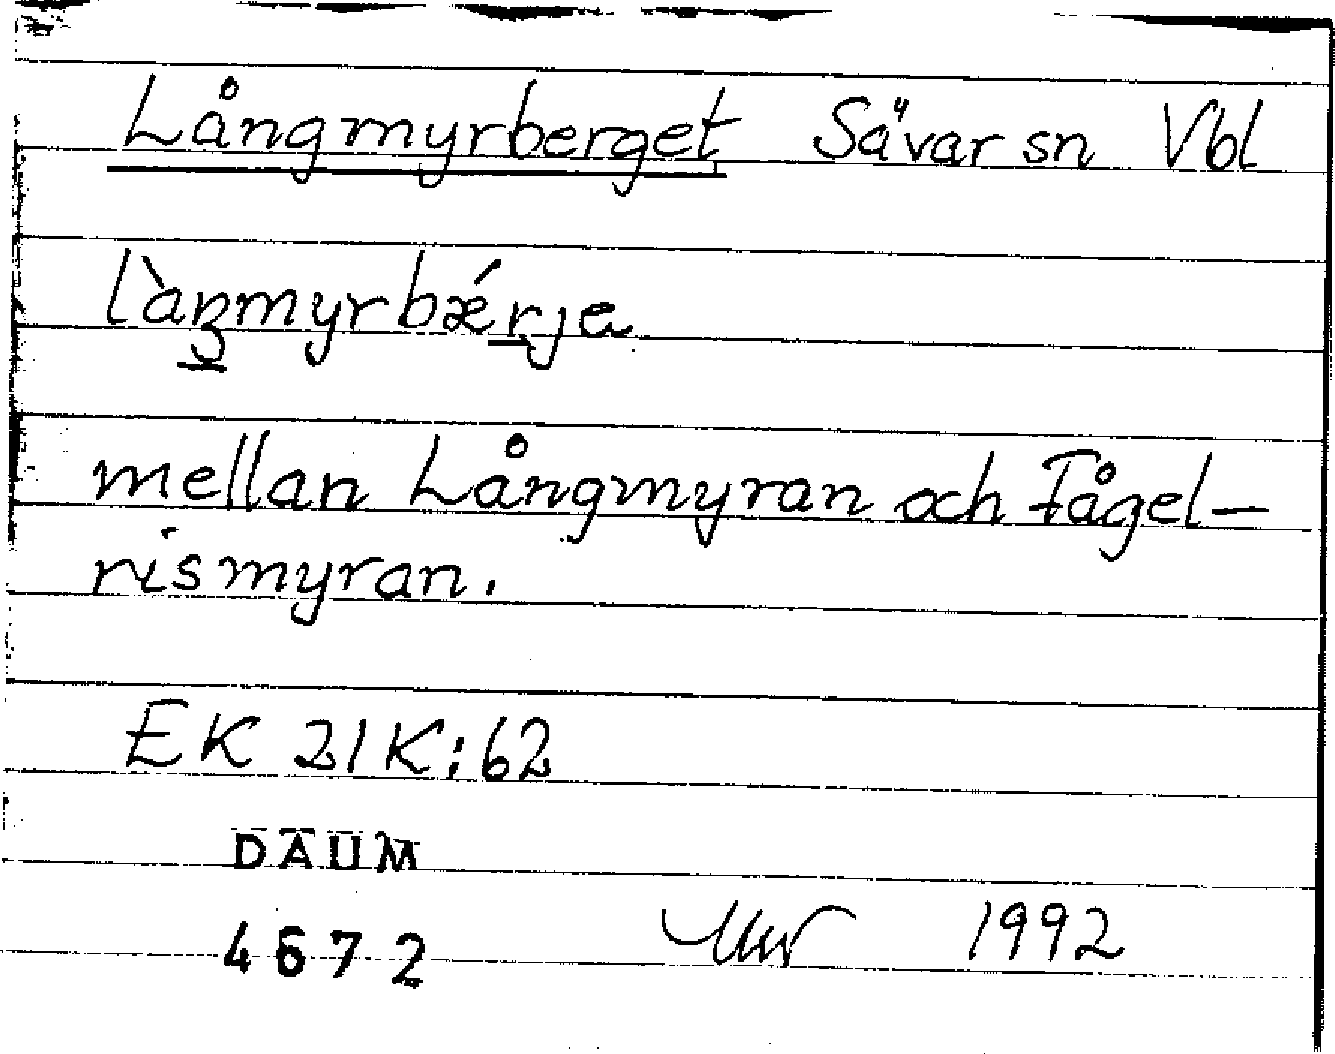 Långmyrberget Sävar sn Vbl
làŋmyrbǽrja
mellan Långmyran och Fågel-
rismyran.
EK 21K:62
DAUM
4672 1992